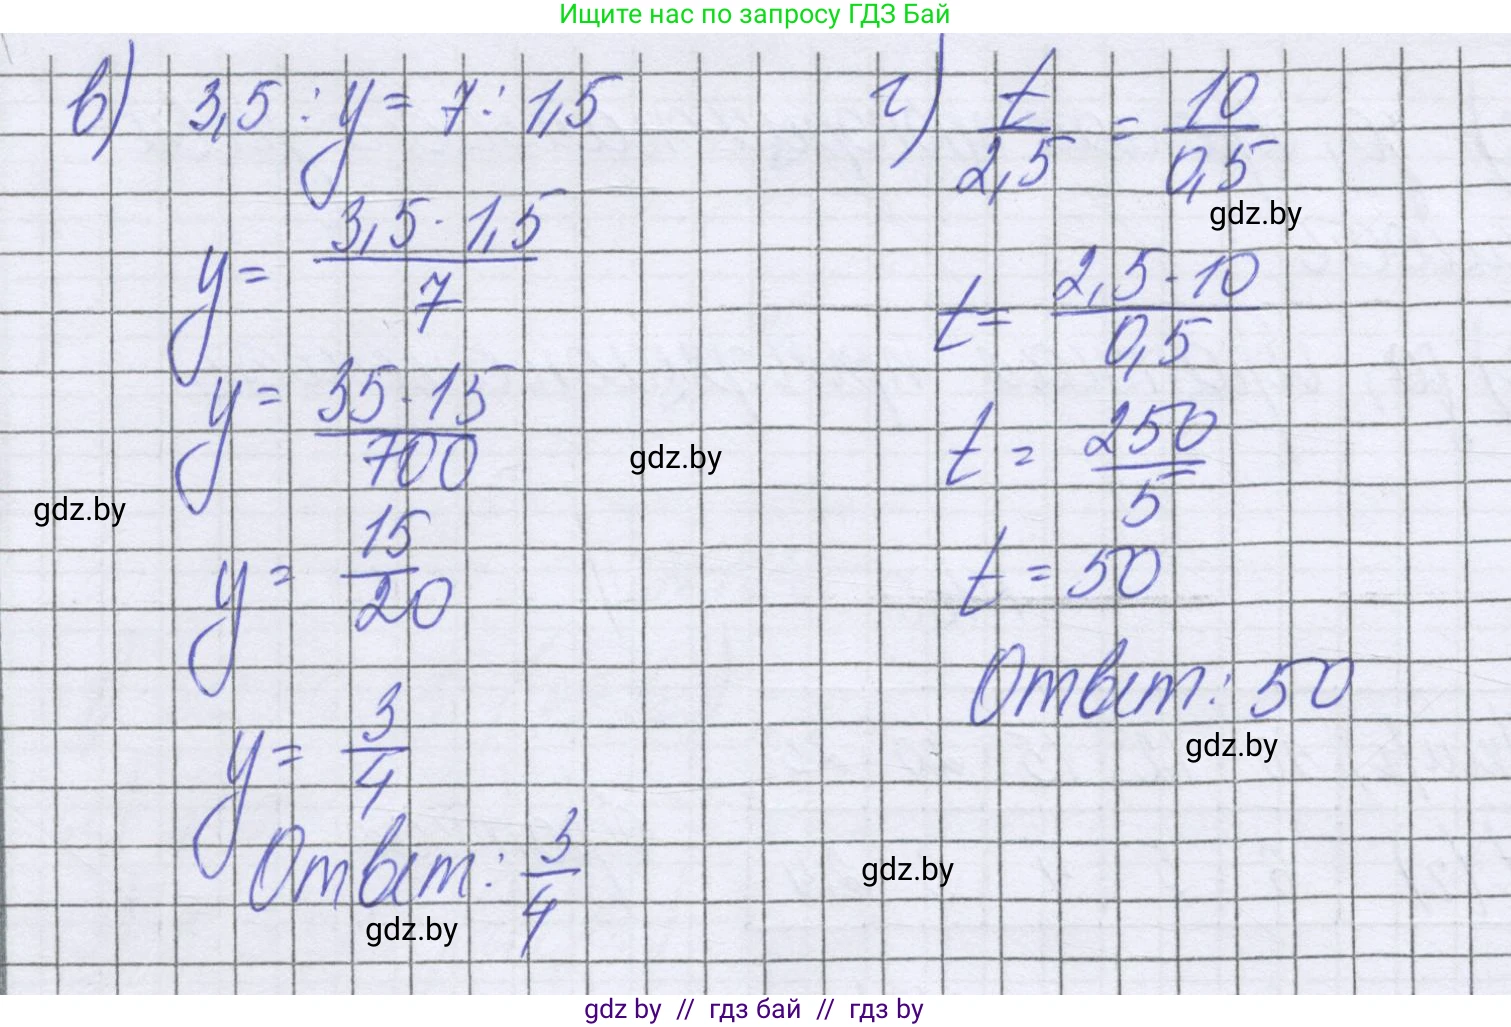 Ищите нас по запросу ГДЗ Бай
в) 3,5 : y = 7 : 1,5
y = 3,5 · 1,5 / 7
y = 35 · 15 / 700
y = 15 / 20
y = 3 / 4
Ответ: 3 / 4
г) t / 2,5 = 10 / 0,5
gdz.by
t = 2,5 · 10 / 0,5
t = 250 / 5
t = 50
Ответ: 50
gdz.by
gdz.by
gdz.by
gdz.by
gdz.by
gdz by // гдз бай // гдз by